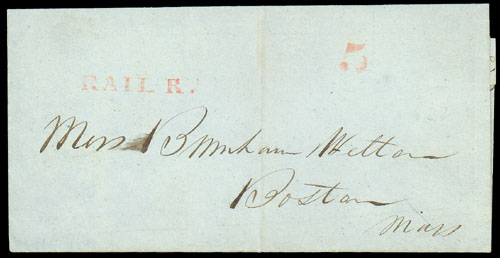 5
RAIL R.
Mess Burnham Welton
Boston
Mass